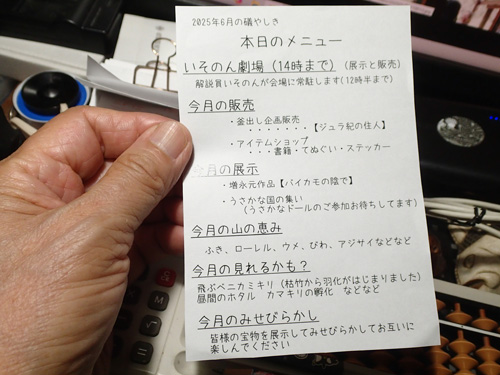 2025年6月の礒やしき
本日のメニュー
いそのん劇場（14時まで）（展示と販売）
解説員いそのんが会場に常駐します(12時半まで)
今月の販売
・釜出し企画販売
・・・・・・・【ジュラ紀の住人】
・アイテムショップ
・・・・書籍・てぬぐい・ステッカー
今月の展示
・増永元作品【バイカモの陰で】
・うさかな国の集い
（うさかなドールのご参加お待ちしてます）
今月の山の恵み
ふき、ローレル、ウメ、びわ、アジサイなどなど
今月の見れるかも？
飛ぶベニカミキリ（枯竹から羽化がはじまりました）
昼間のホタル　カマキリの孵化　などなど
今月のみせびらかし
皆様の宝物を展示してみせびらかしてお互いに
楽しんでください